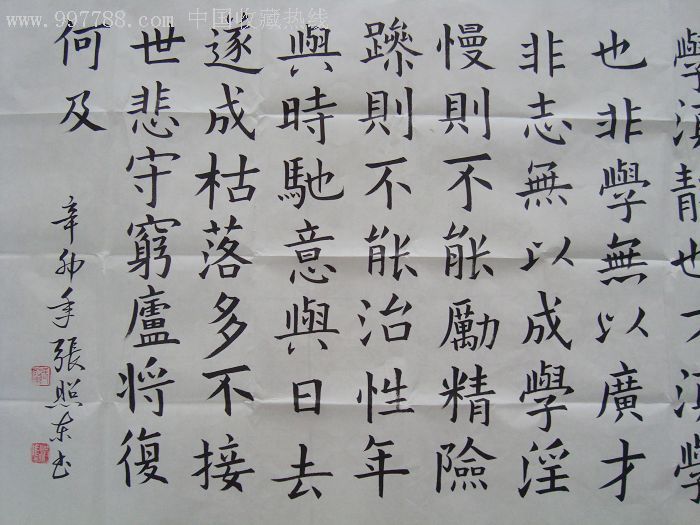 www.997788.com 中国收藏热线
學須靜也才須學
也非學無以廣才
非志無以成學淫
慢則不能勵精險
躁則不能治性年
與時馳意與日去
遂成枯落多不接
世悲守窮廬將復
何及
辛卯年張照東書